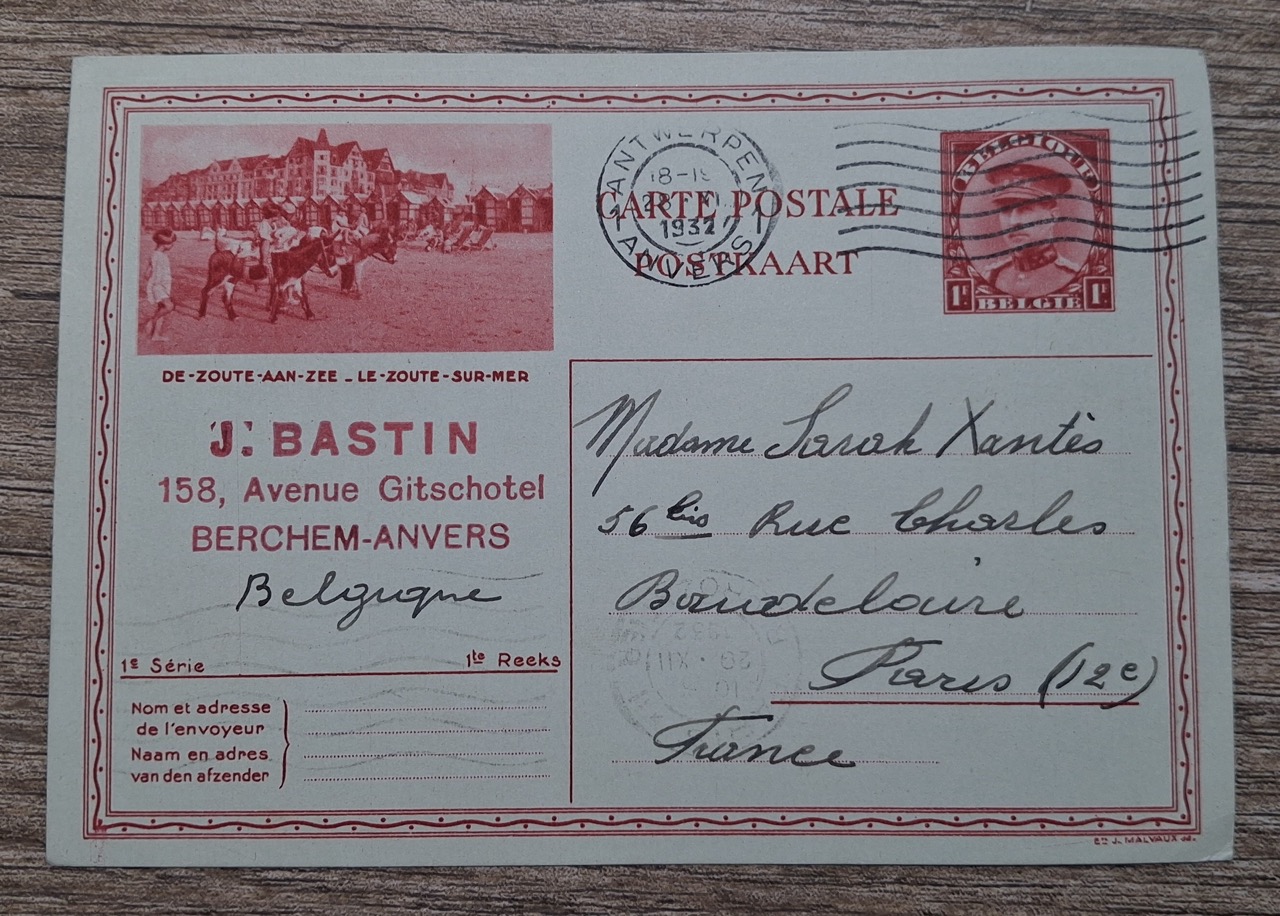 ANTWERPEN
1932
ANVERS
CARTE POSTALE
POSTKAART
BELGIQUE
1F
BELGIE
1F
DE-ZOUTE-AAN-ZEE _ LE-ZOUTE-SUR-MER
J. BASTIN
158, Avenue Gitschotel
BERCHEM-ANVERS
Belgique
1E Série
1te Reeks
Nom et adresse
de l'envoyeur
Naam en adres
van den afzender
Madame Sarah Xantès
56 bis Rue Charles
Baudelaire
Paris (12e)
France
J. MALVAUX